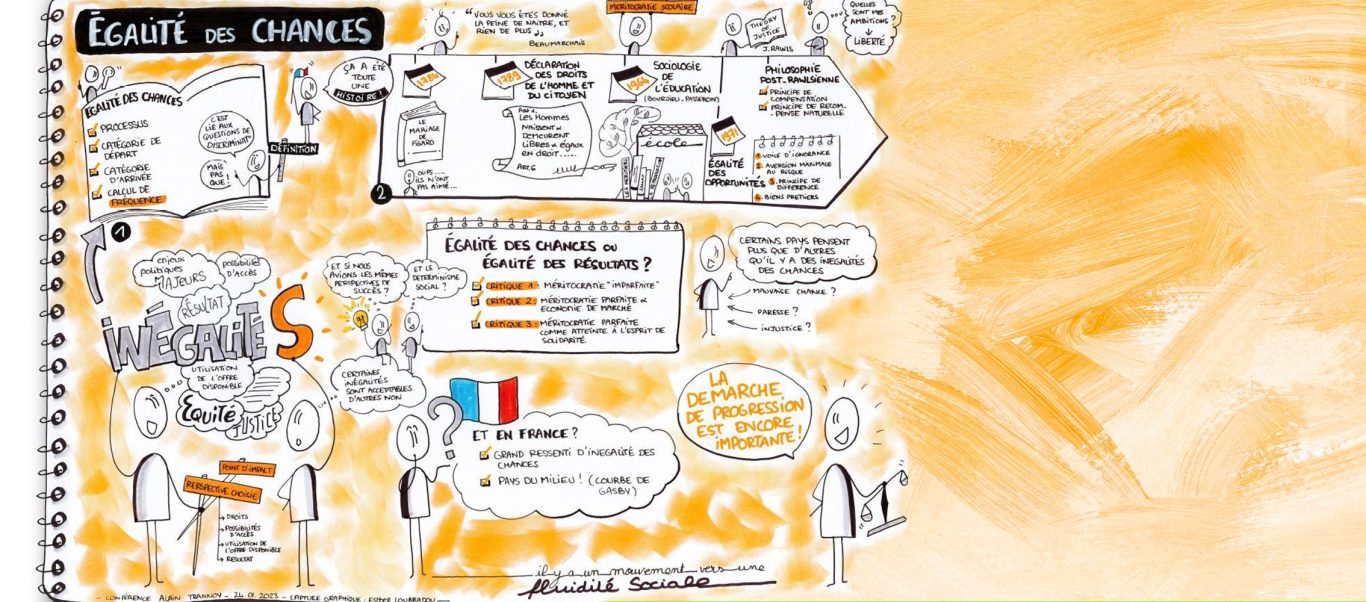 ÉGALITÉ DES CHANCES
“ VOUS VOUS ÊTES DONNÉ
LA PEINE DE NAÎTRE, ET
RIEN DE PLUS „
BEAUMARCHAIS
MÉRITOCRATIE SCOLAIRE
THEORY
OF
JUSTICE
J. RAWLS
QUELLES
SONT MES
AMBITIONS ?
↓
LIBERTÉ
ÉGALITÉ DES CHANCES
PROCESSUS
CATÉGORIE DE
DÉPART
CATÉGORIE
D'ARRIVÉE
CALCUL DE
FRÉQUENCE
C'EST
LIÉ AUX
QUESTIONS DE
DISCRIMINAT°
MAIS
PAS
QUE !
DÉFINITION
1
ÇA A ÉTÉ
TOUTE
UNE
HISTOIRE !
2
1784
LE
MARIAGE
DE
FIGARO
OUPS....
ILS N'ONT
PAS AIMÉ...
1789
DÉCLARATION
DES DROITS
DE L'HOMME ET
DU CITOYEN
Art 1
Les Hommes
NAISSENT &
DEMEURENT
LIBRES & ÉGAUX
EN DROIT.....
ART.6
1964
SOCIOLOGIE
DE
L'ÉDUCATION
(BOURDIEU-PASSERON)
école
LES HÉRITIERS
1971
ÉGALITÉ
DES
OPPORTUNITÉS
PHILOSOPHIE
POST-RAWLSIENNE
PRINCIPE DE
COMPENSATION
PRINCIPE DE RECOM-
-PENSE NATURELLE
1. VOILE D'IGNORANCE
2. AVERSION MAXIMALE
AU RISQUE
3. PRINCIPE DE
DIFFÉRENCE
4. BIENS PREMIERS
enjeux
politiques
MAJEURS
possibilités
D'ACCÈS
RÉSULTAT
INÉGALITÉS
UTILISATION
DE L'OFFRE
DISPONIBLE
Équité
JUSTICE
POINT D'IMPACT
PERSPECTIVE CHOISIE
→ DROITS
→ POSSIBILITÉS
D'ACCÈS
→ UTILISATION DE
L'OFFRE DISPONIBLE
→ RÉSULTAT
ET SI NOUS
AVIONS LES MÊMES
PERSPECTIVES DE
SUCCÈS ?
ET LE
DÉTERMINISME
SOCIAL ?
CERTAINES
INÉGALITÉS
SONT ACCEPTABLES
D'AUTRES NON
ÉGALITÉ DES CHANCES OU
ÉGALITÉ DES RÉSULTATS ?
CRITIQUE 1 : MÉRITOCRATIE "IMPARFAITE"
CRITIQUE 2 : MÉRITOCRATIE PARFAITE &
ECONOMIE DE MARCHÉ
CRITIQUE 3 : MÉRITOCRATIE PARFAITE
COMME ATTEINTE À L'ESPRIT DE
SOLIDARITÉ.
CERTAINS PAYS PENSENT
PLUS QUE D'AUTRES
QU'IL Y A DES INÉGALITÉS
DES CHANCES
MAUVAISE CHANCE ?
PARESSE ?
INJUSTICE ?
?
ET EN FRANCE ?
GRAND RESSENTI D'INÉGALITÉ DES
CHANCES
PAYS DU MILIEU ! (COURBE DE
GASBY)
LA
DÉMARCHE
DE PROGRESSION
EST ENCORE
IMPORTANTE !
il y a un mouvement vers une
fluidité Sociale
- CONFÉRENCE ALAIN TRANNOY - 24.01.2023 - CAPTURE GRAPHIQUE : ESTHER LOUBRADOU